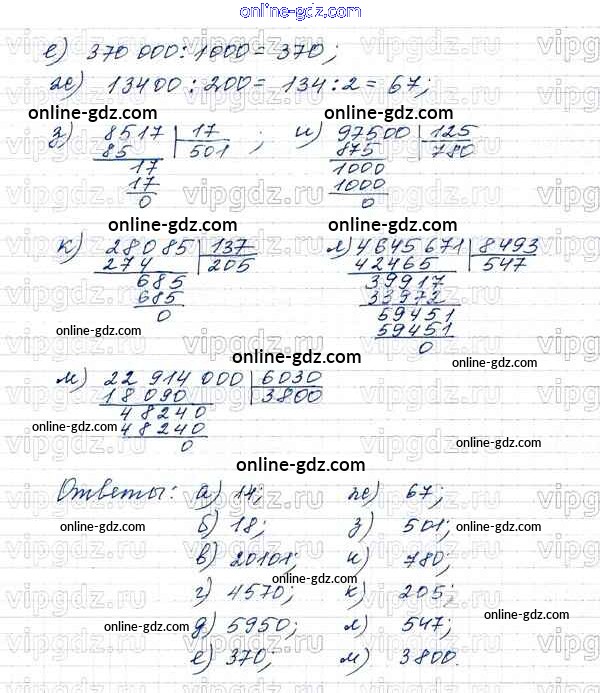 online-gdz.com
е) 370 000 : 1000 = 370;
ж) 13400 : 200 = 134 : 2 = 67;
online-gdz.com
з) 8517 | 17 ; и) 97500 | 125
85 | 501 875 | 780
17 1000
17 1000
0 0
online-gdz.com
к) 28085 | 137 л) 4645671 | 8493
274 | 205 42465 | 547
685 39917
685 33972
0 59451
59451
0
online-gdz.com
online-gdz.com
online-gdz.com
м) 22 914 000 | 6030
18 090 | 3800
48240
48240
0
online-gdz.com
online-gdz.com
online-gdz.com
Ответы: а) 14; ж) 67;
online-gdz.com
б) 18; з) 501;
online-gdz.com
online-gdz.com
в) 20101; и) 780;
online-gdz.com
г) 4570; к) 205;
online-gdz.com
online-gdz.com
д) 5950; л) 547;
е) 370; м) 3800.
online-gdz.com
vipgdz.ru